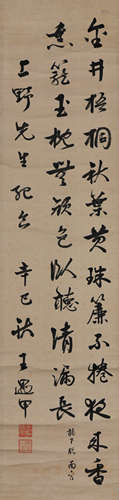 金井梧桐秋葉黄珠簾不捲夜来香
熏籠玉枕無顔色臥聽清漏長
上野先生紀念 辛巳秋 王遇甲